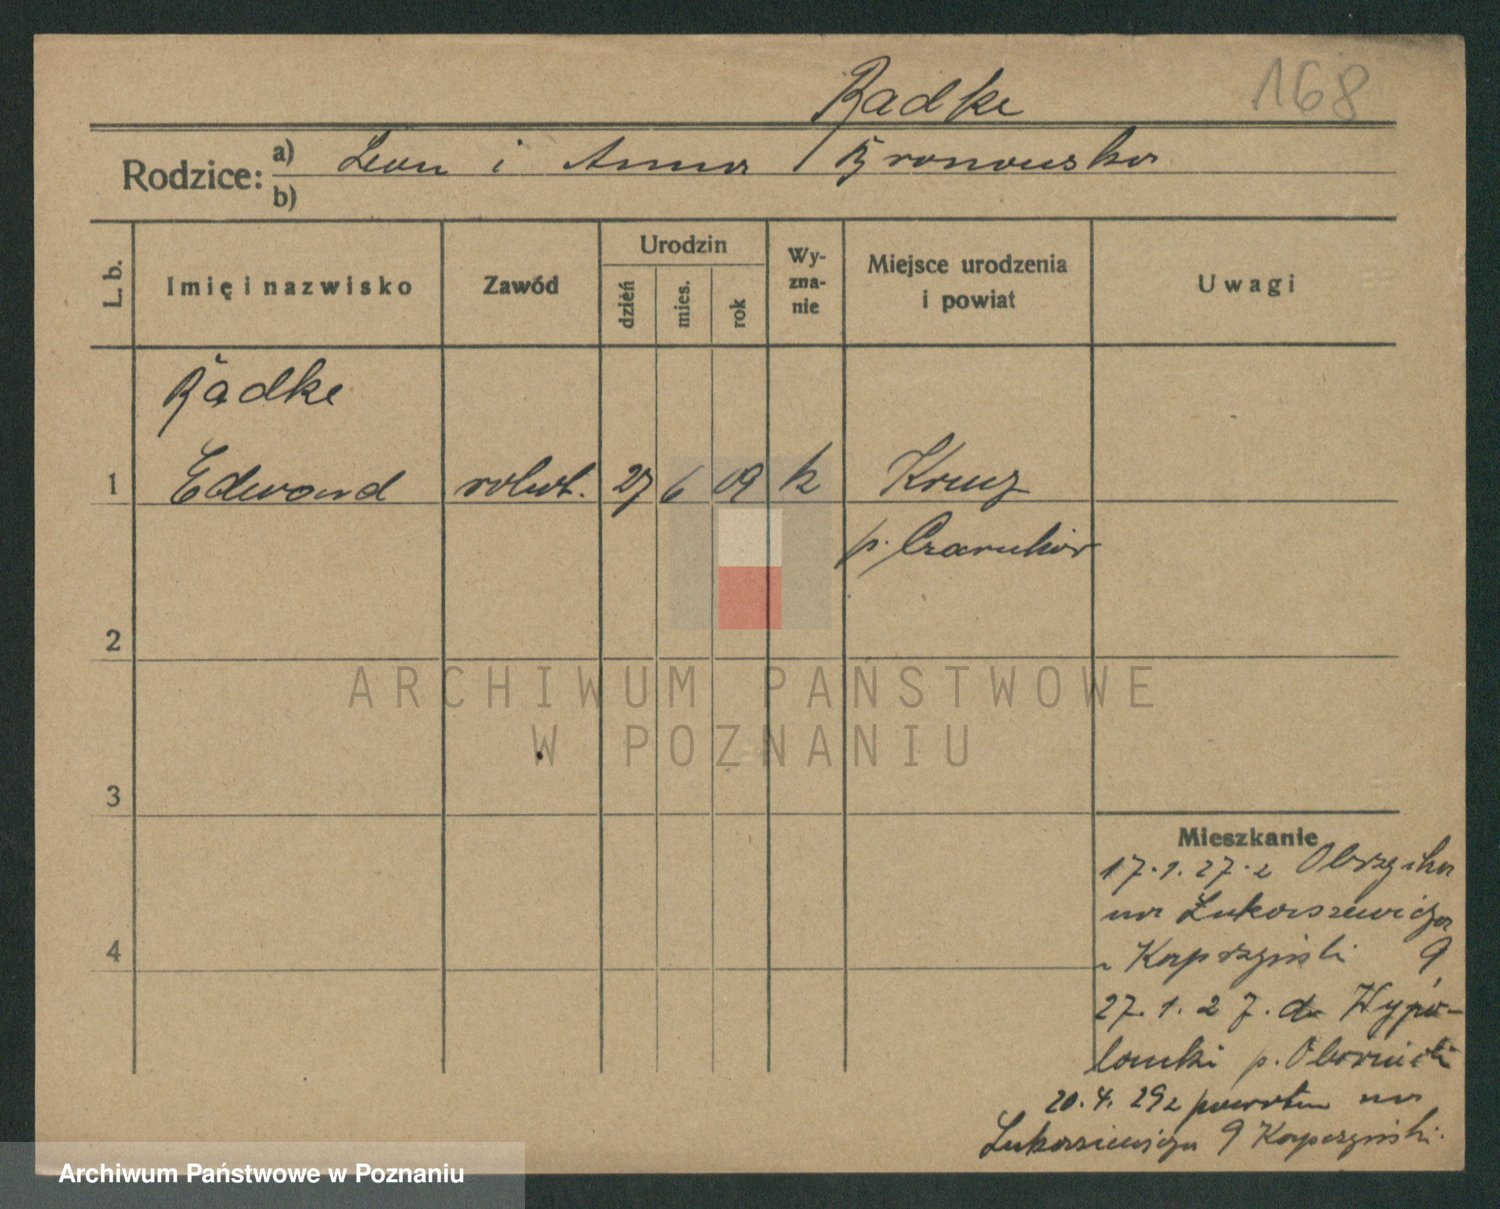 Radke
168
Rodzice: a) Leon i Anna / Bronowska
b)
L. b.
Imię i nazwisko
Zawód
Urodzin
dzień
mies.
rok
Wy-
zna-
nie
Miejsce urodzenia
i powiat
Uwagi
Radke
1 Edward robot. 27 6 09 k Kreuz
p. Czarnków
2
ARCHIWUM PAŃSTWOWE
W POZNANIU
3
Mieszkanie
17.1.27 z Obrzycka
na Łukaszewicza
u Kapczyński 9
27.1.27. do
p. Oborniki
4
20.4.29 z powrotem na
Łukaszewicza 9 Kapczyński.
Archiwum Państwowe w Poznaniu